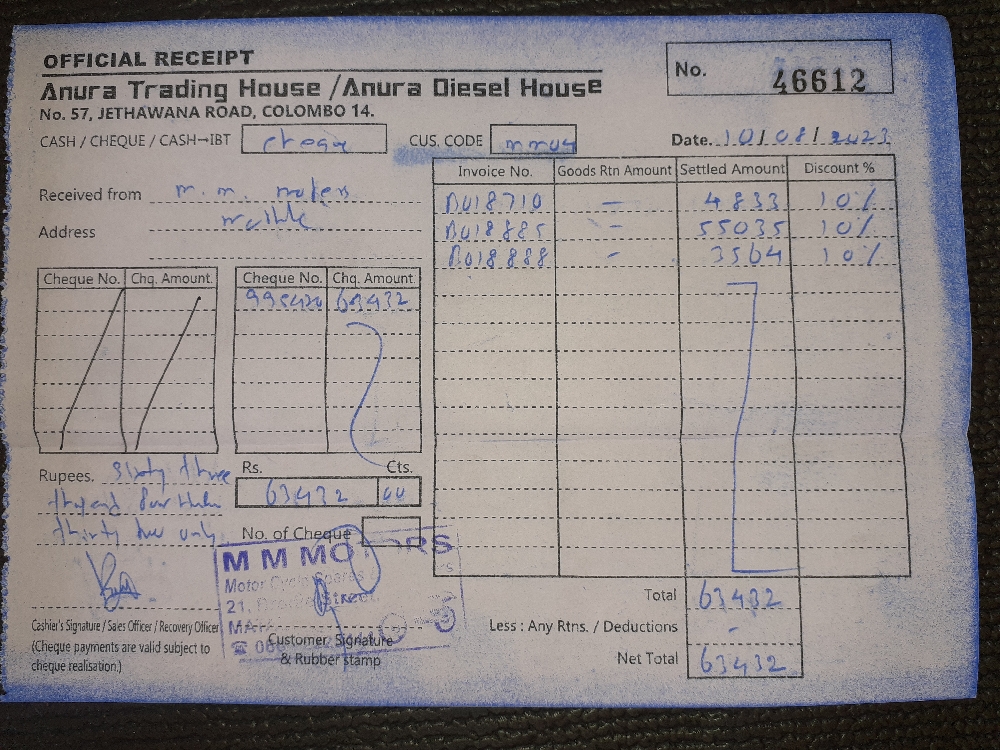 OFFICIAL RECEIPT
Anura Trading House /Anura Diesel House
No. 57, JETHAWANA ROAD, COLOMBO 14.
No. 46612
CASH / CHEQUE / CASH→IBT
CUS. CODE
Date. 10/08/2023
Received from m.m. motors
Address
Cheque No. Chq. Amount
Cheque No. Chq. Amount
63432
Invoice No. Goods Rtn Amount Settled Amount Discount %
– 4833 10%
– 55035 10%
– 3564 10%
Rupees. Sixty three
thirty two only
Rs. Cts.
63432
No. of Cheque
Total 63432
Less : Any Rtns. / Deductions -
Net Total 63432
M M MOTORS
Motor Cycle Spares
21, Street
Cashier's Signature / Sales Officer / Recovery Officer
(Cheque payments are valid subject to
cheque realisation.)
Customer, Signature
& Rubber stamp